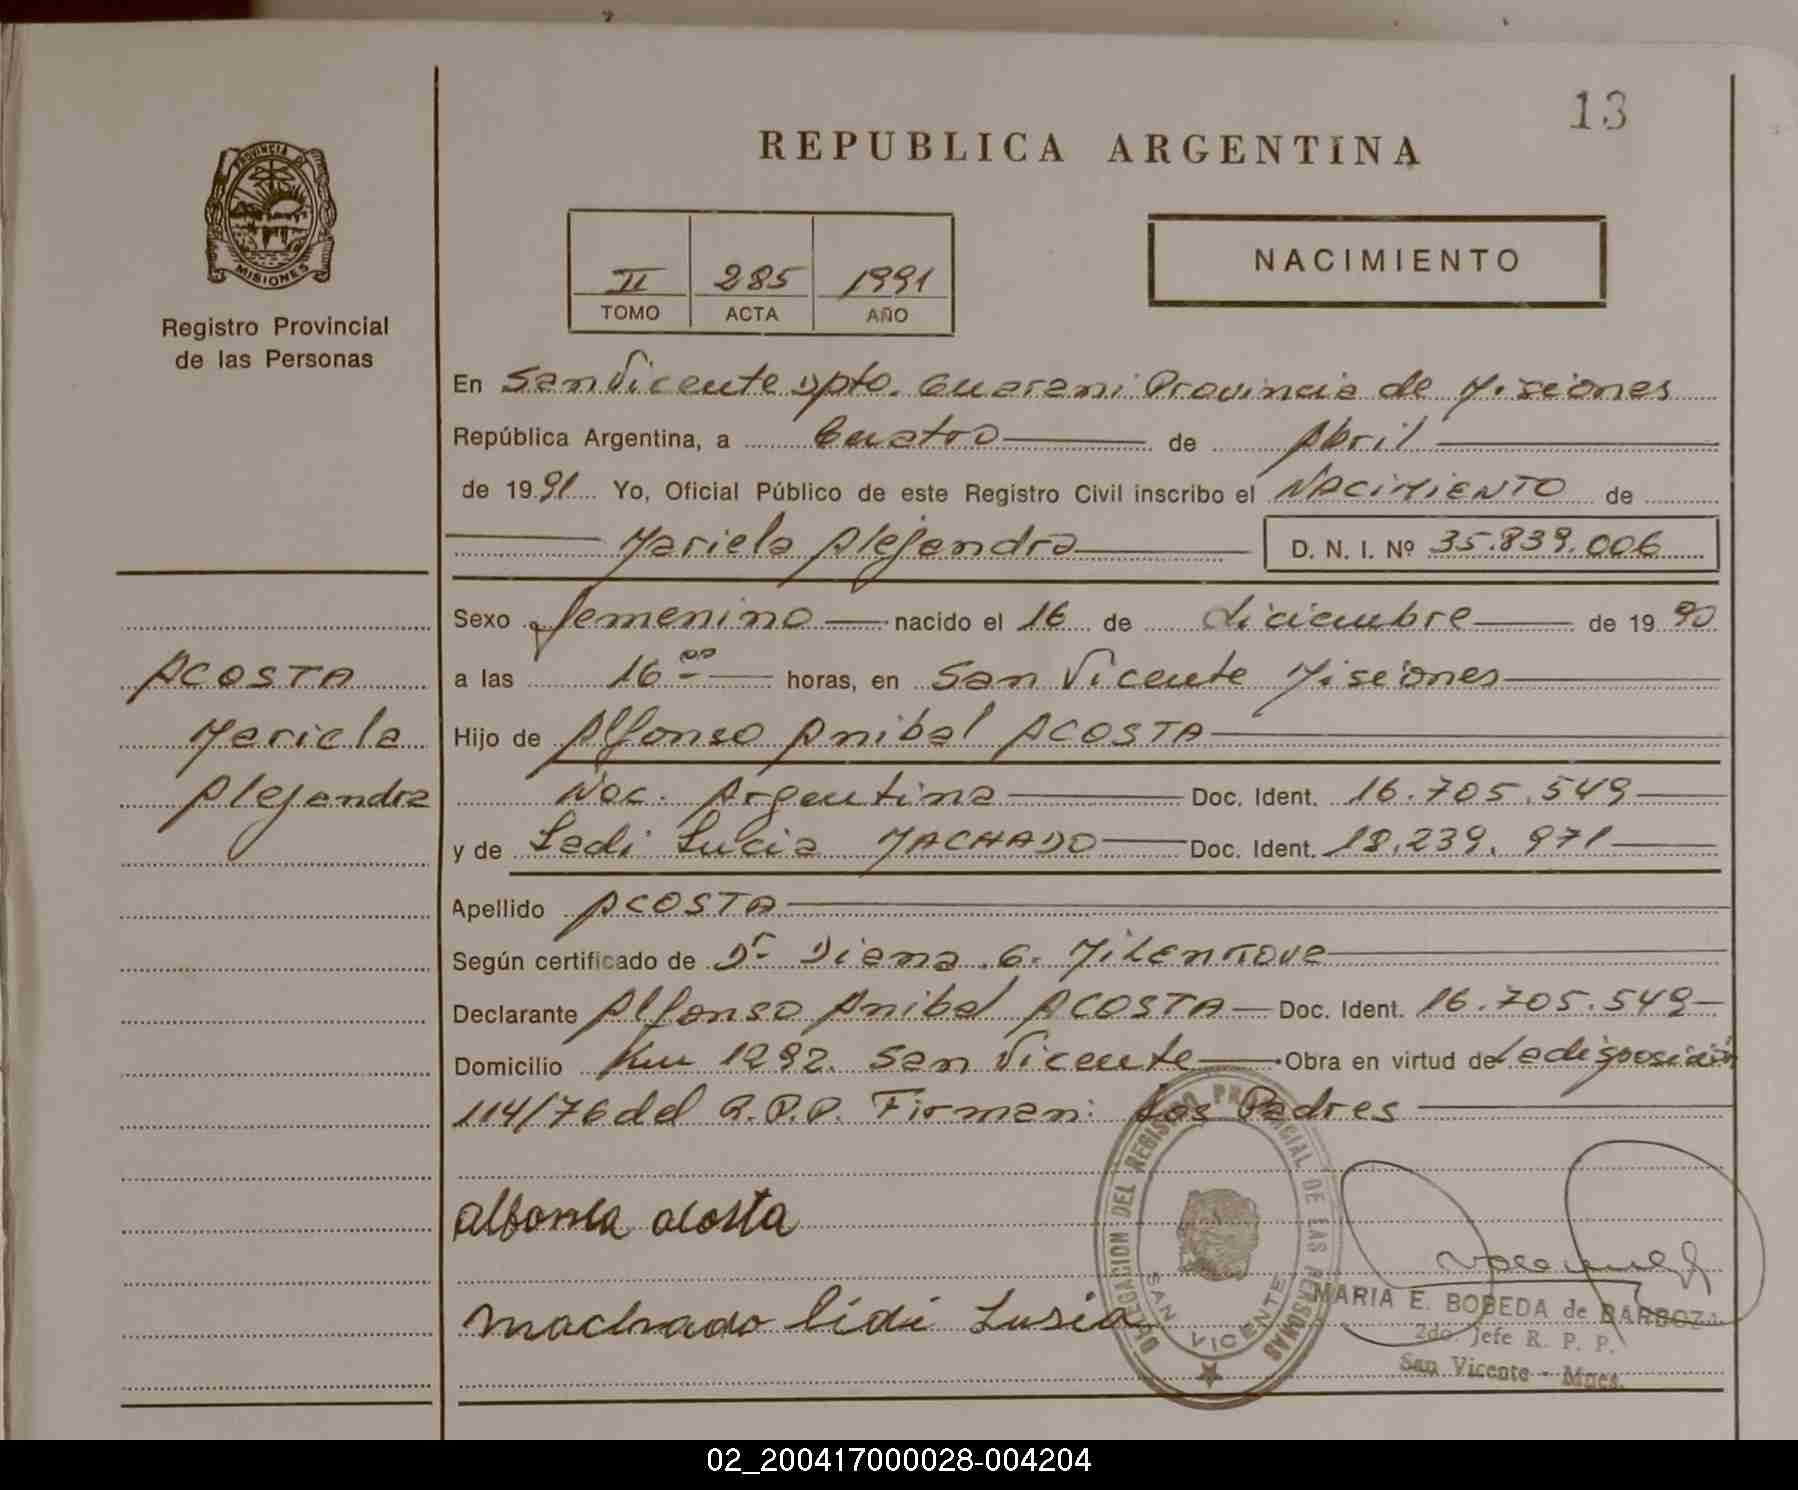 13
REPUBLICA ARGENTINA
PROVINCIA DE
MISIONES
Registro Provincial
de las Personas
II 285 1991
TOMO ACTA AÑO
NACIMIENTO
En San Vicente Dpto. Guarani Provincia de Misiones
República Argentina, a Cuatro de Abril
de 1991 Yo, Oficial Público de este Registro Civil inscribo el NACIMIENTO de
Mariela Alejandra D. N. I. Nº 35.839.006
Sexo femenino nacido el 16 de diciembre de 1990
a las 16 00 horas, en San Vicente Misiones
Hijo de Alfonso Anibal ACOSTA
Nac. Argentina Doc. Ident. 16.705.549
y de Ledi Lucia MACHADO Doc. Ident. 18.239.971
Apellido ACOSTA
Según certificado de Dr Diana G.
Declarante Alfonso Anibal ACOSTA Doc. Ident. 16.705.549
Domicilio Km 1292. San Vicente Obra en virtud de la disposición
114/76 del R.P.P. Firman: Los Padres
ACOSTA
Mariela
Alejandra
alfonso acosta
machado lidi Lusia
DELEGACION DEL REGISTRO PROVINCIAL DE LAS PERSONAS
SAN VICENTE
MARIA E. BOBEDA de BARBOZA
2do Jefe R. P. P.
San Vicente - Mnes.
02_200417000028-004204